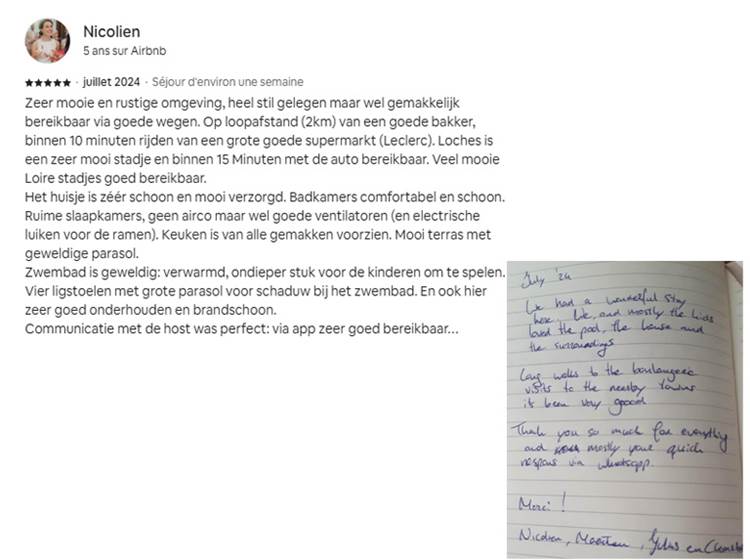 Nicolien
5 ans sur Airbnb
★★★★★ · juillet 2024 · Séjour d'environ une semaine
Zeer mooie en rustige omgeving, heel stil gelegen maar wel gemakkelijk
bereikbaar via goede wegen. Op loopafstand (2km) van een goede bakker,
binnen 10 minuten rijden van een grote goede supermarkt (Leclerc). Loches is
een zeer mooi stadje en binnen 15 Minuten met de auto bereikbaar. Veel mooie
Loire stadjes goed bereikbaar.
Het huisje is zéér schoon en mooi verzorgd. Badkamers comfortabel en schoon.
Ruime slaapkamers, geen airco maar wel goede ventilatoren (en electrische
luiken voor de ramen). Keuken is van alle gemakken voorzien. Mooi terras met
geweldige parasol.
Zwembad is geweldig: verwarmd, ondieper stuk voor de kinderen om te spelen.
Vier ligstoelen met grote parasol voor schaduw bij het zwembad. En ook hier
zeer goed onderhouden en brandschoon.
Communicatie met de host was perfect: via app zeer goed bereikbaar...
July '24
We had a wonderful stay
here. We, and mostly the kids
loved the pool, the house and
the surroundings
Long walks to the boulangerie
visits to the nearby towns
it been very goood
Thank you so much for everything
and mostly your quick
respons via whatsapp.
Merci!
Nicolien, Maarten, en